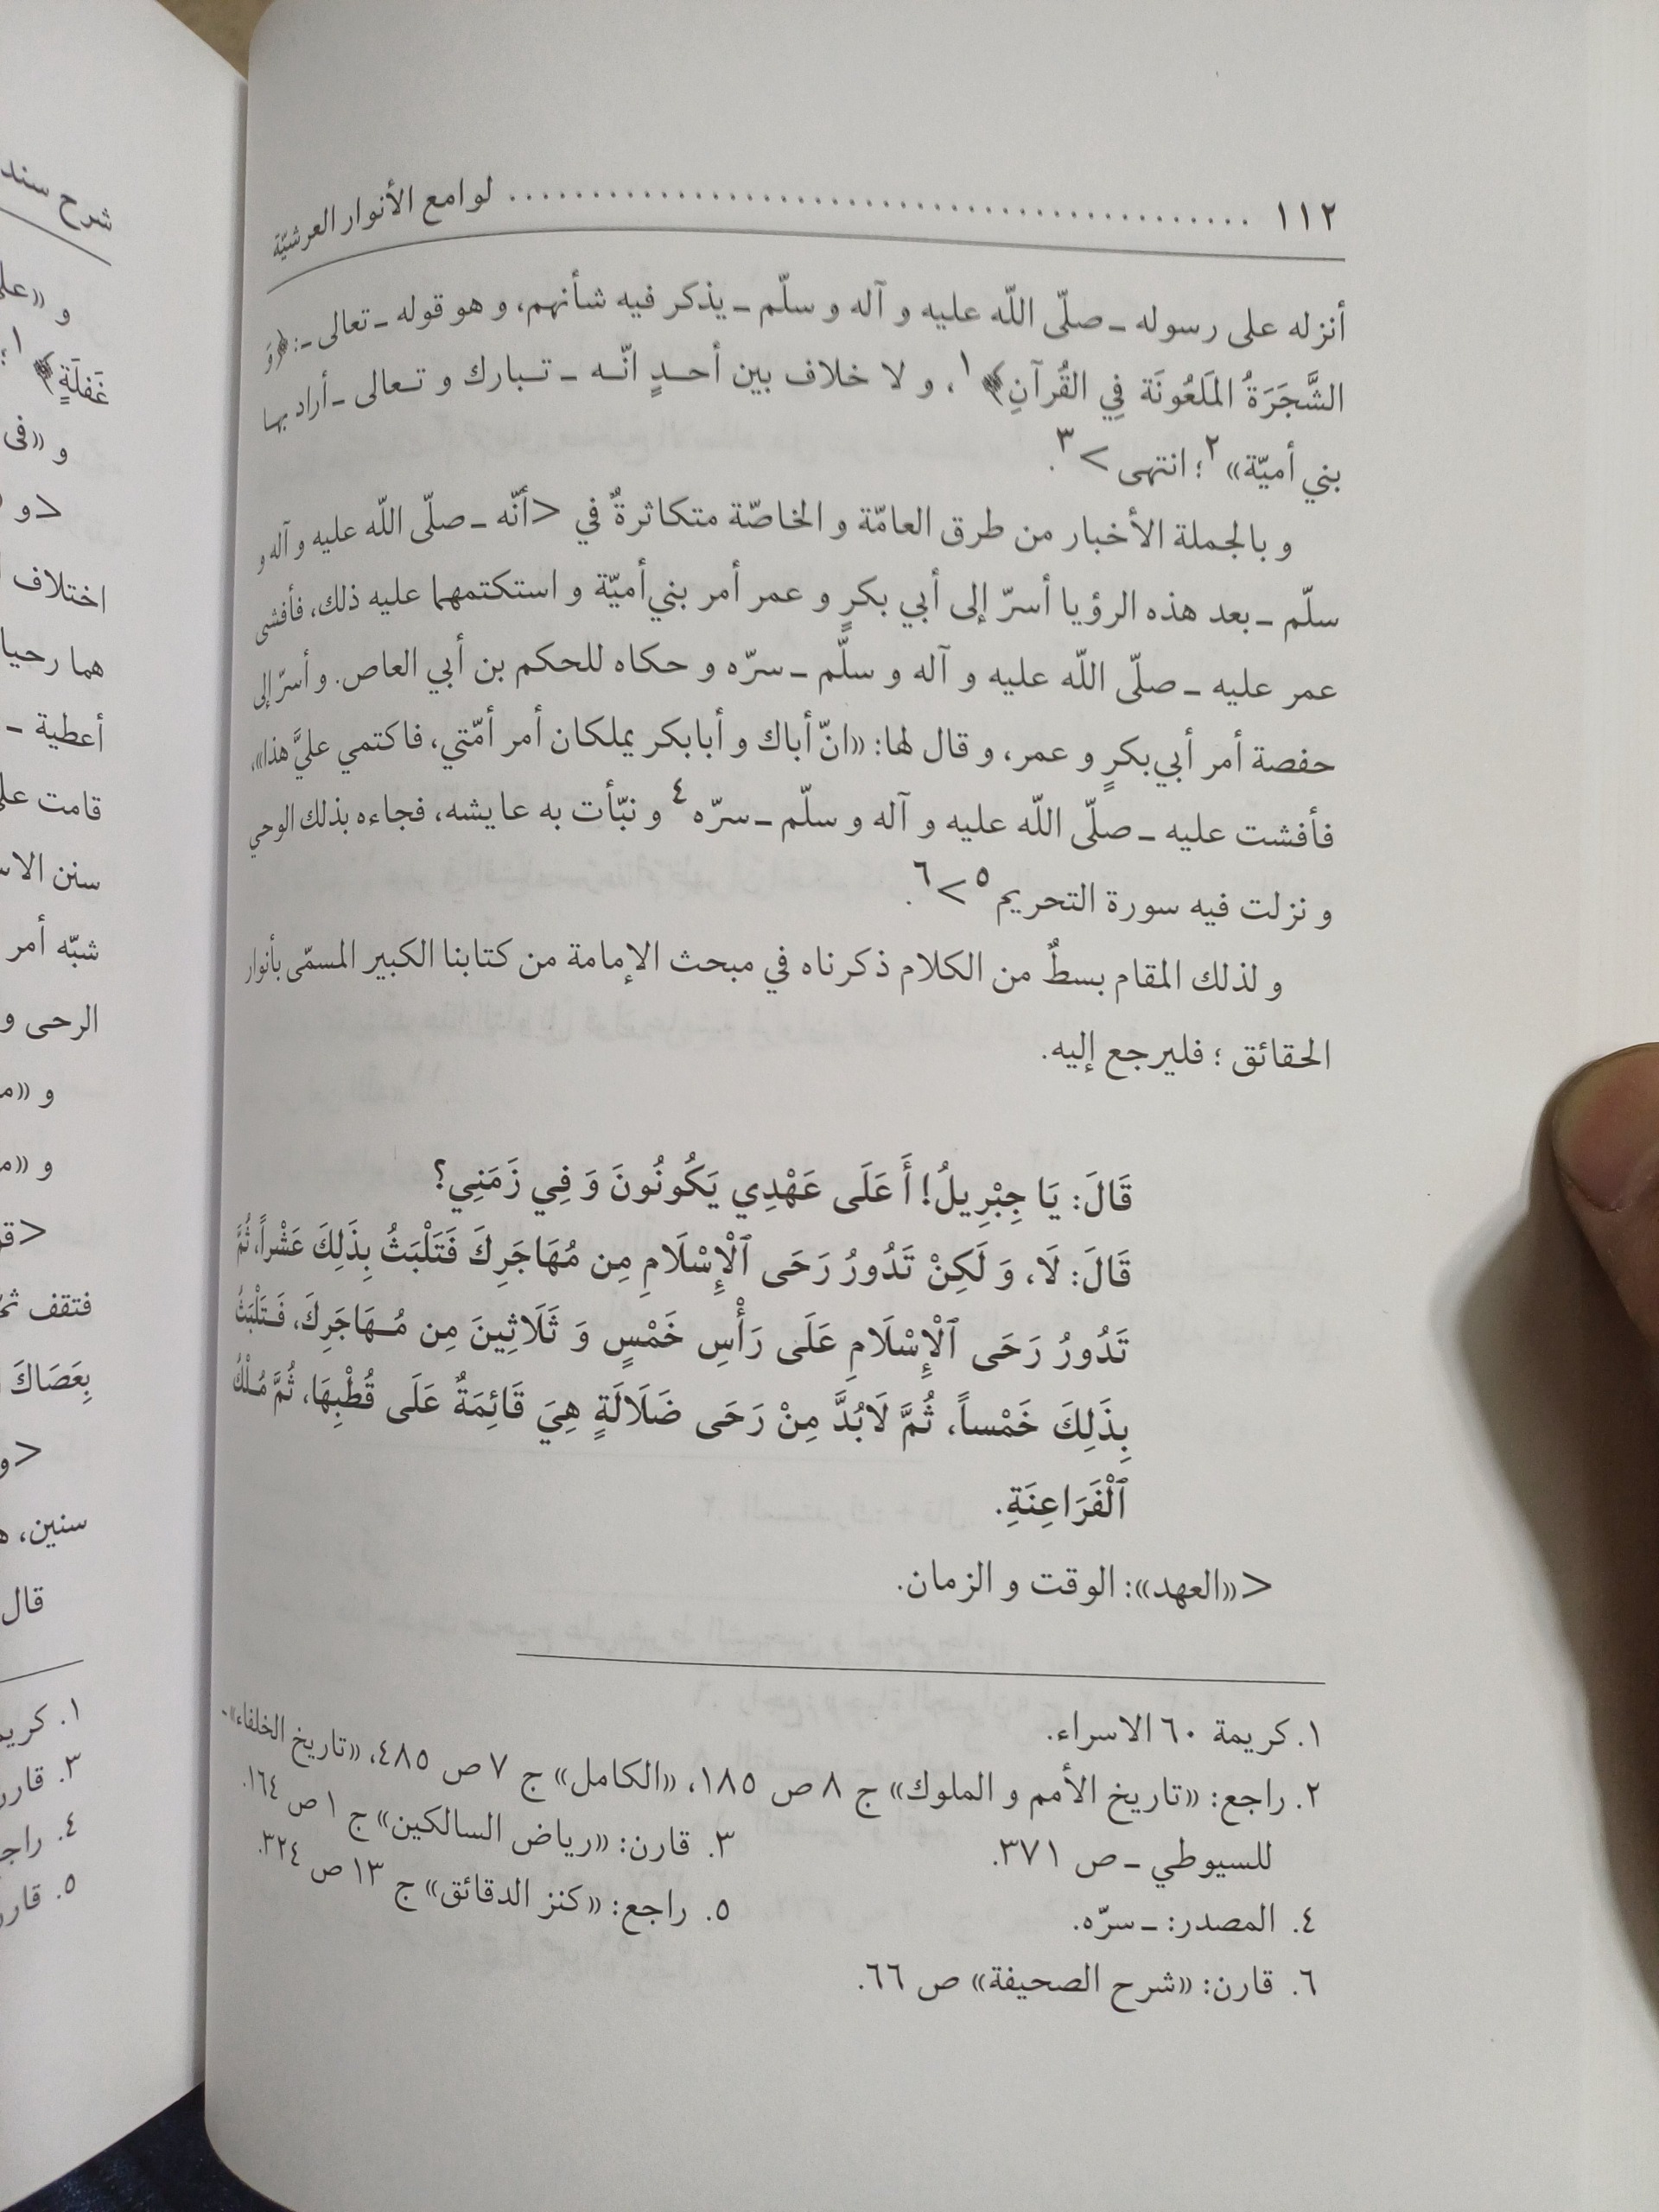 ١١٢ .................................................. لوامع الأنوار العرشيّة
أنزله على رسوله ـ صلّى اللّه عليه و آله و سلّم ـ يذكر فيه شأنهم، و هو قوله ـ تعالى ـ: ﴿وَ
الشَّجَرَةُ المَلعُونَة فِي القُرآنِ﴾١، و لا خلاف بين أحـدٍ انّـه ـ تـبارك و تـعالى ـ أراد بها
بني أميّة»٢؛ انتهى >٣.
و بالجملة الأخبار من طرق العامّة و الخاصّة متكاثرةٌ في <أنّه ـ صلّى اللّه عليه و آله و
سلّم ـ بعد هذه الرؤيا أسرّ إلى أبي بكرٍ و عمر أمر بني‌أميّة و استكتمهما عليه ذلك، فأفشى
عمر عليه ـ صلّى اللّه عليه و آله و سلّم ـ سرّه و حكاه للحكم بن أبي العاص. و أسرّ إلى
حفصة أمر أبي‌بكرٍ و عمر، و قال لها: «انّ أباك و أبابكر يملكان أمر أمّتي، فاكتمي عليَّ هذا»،
فأفشت عليه ـ صلّى اللّه عليه و آله و سلّم ـ سرّه٤ و نبّأت به عايشه، فجاءه بذلك الوحي
و نزلت فيه سورة التحريم٥ >٦.
و لذلك المقام بسطٌ من الكلام ذكرناه في مبحث الإمامة من كتابنا الكبير المسمّى بأنوار
الحقائق ؛ فليرجع إليه.
قَالَ: يَا جِبْرِيلُ! أَ عَلَى عَهْدِي يَكُونُونَ وَ فِي زَمَنِي؟
قَالَ: لَا، وَ لَكِنْ تَدُورُ رَحَى ٱلْإِسْلَامِ مِن مُهَاجَرِكَ فَتَلْبَثُ بِذَلِكَ عَشْراً، ثُمَّ
تَدُورُ رَحَى ٱلْإِسْلَامِ عَلَى رَأْسِ خَمْسٍ وَ ثَلَاثِينَ مِن مُـهَاجَرِكَ، فَـتَلْبَثُ
بِذَلِكَ خَمْساً، ثُمَّ لَابُدَّ مِنْ رَحَى ضَلَالَةٍ هِيَ قَائِمَةٌ عَلَى قُطْبِهَا، ثُمَّ مُـلْكُ
ٱلْفَرَاعِنَةِ.
<«العهد»: الوقت و الزمان.
١. كريمة ٦٠ الاسراء.
٢. راجع: «تاريخ الأمم و الملوك» ج ٨ ص ١٨٥، «الكامل» ج ٧ ص ٤٨٥، «تاريخ الخلفاء» ـ
للسيوطي ـ ص ٣٧١. ٣. قارن: «رياض السالكين» ج ١ ص ١٦٤.
٤. المصدر: ـ سرّه. ٥. راجع: «كنز الدقائق» ج ١٣ ص ٣٢٤.
٦. قارن: «شرح الصحيفة» ص ٦٦.
شرح سند
غَفلَةٍ﴾١؛
و «فى
اختلاف
هما رحيا
أعطية ـ
شبّه أمر
الرحى و
بِعَصَاكَ
سنين،
قال